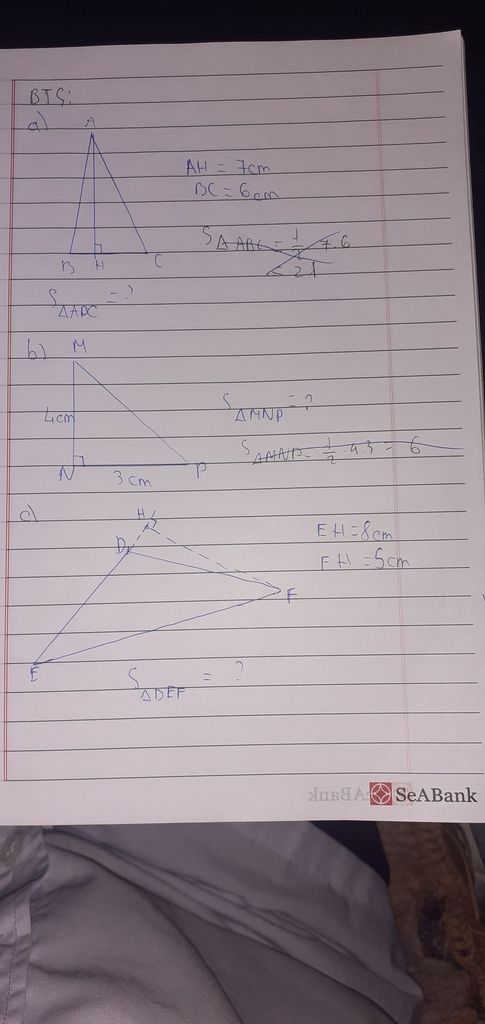 BT5:
a)
A
AH = 7cm
BC = 6cm
S ΔABC = 1/2 7.6
= 21
B H C
S ΔABC = ?
b) M
4cm
S ΔMNP = ?
S ΔMNP = 1/2 .4.3 = 6
N 3cm P
c)
H
D
EH = 8cm
FH = 5cm
F
E
S ΔDEF = ?
SeABank